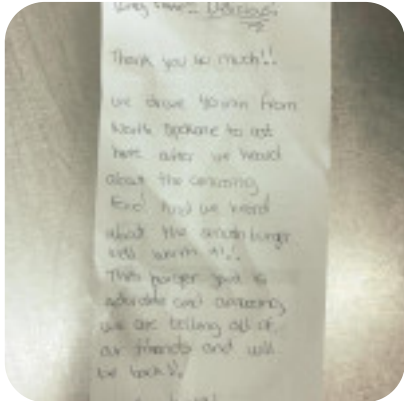 Thank you so much!!
we drove 40 min from
North Spokane to eat
here after we heard
about the amazing
food and we heard
about the smash burger
well worth it!!
This burger spot is
adorable and amazing
we are telling all of
our friends and will
be back!!